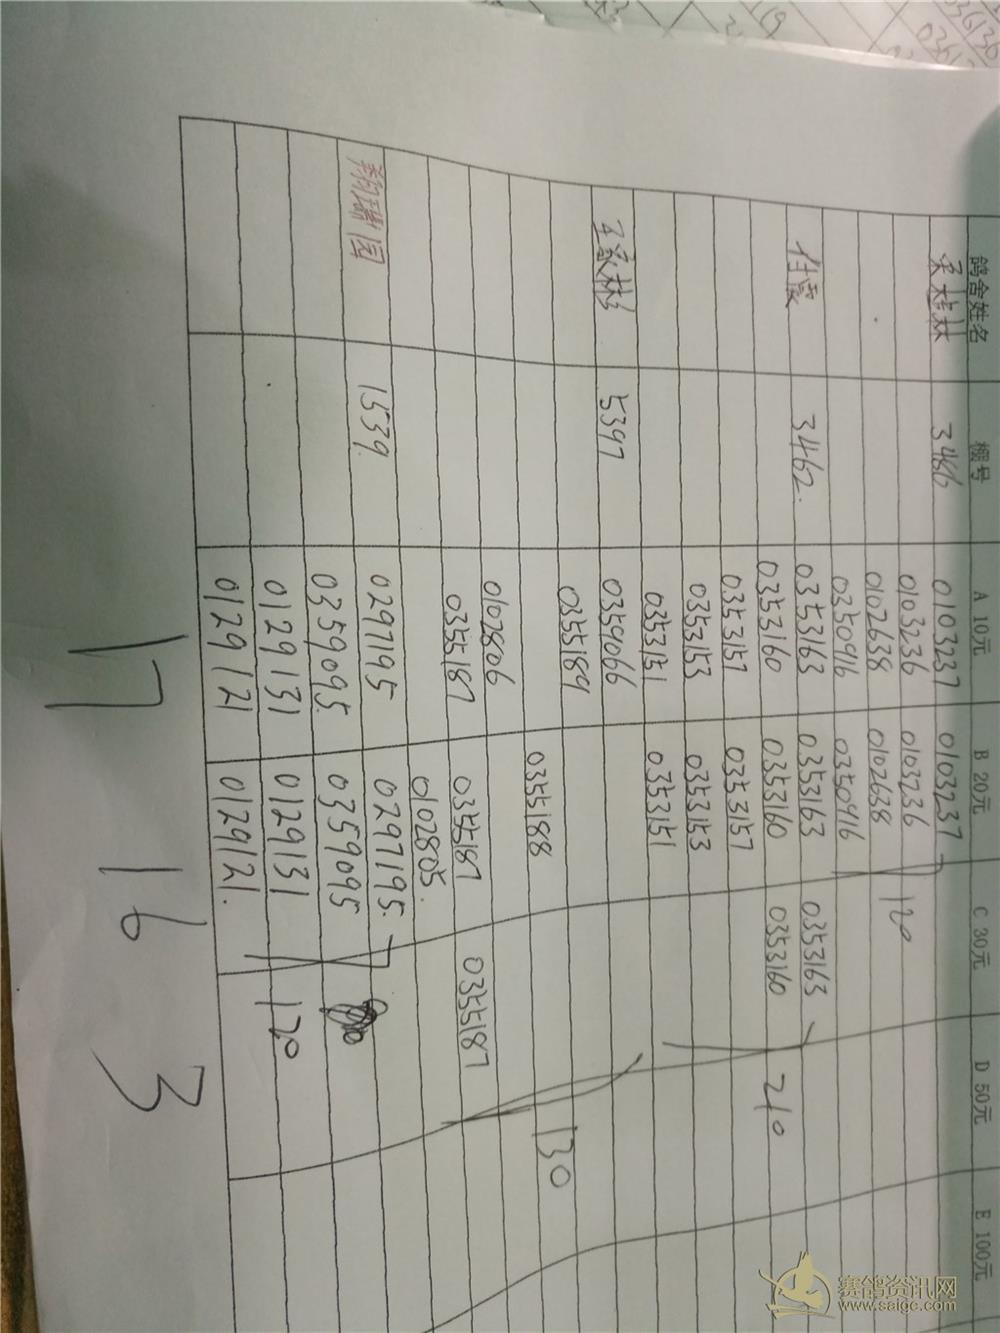 鸽舍姓名 棚号 A 10元 B 20元 C 30元 D 50元 E 100元
桂林 3466 0103237 0103237
0103236 0103236 120
0102638 0102638
0350916 0350916
任霞 3462. 0353163 0353163 0353163
0353160 0353160 0353160 210
0353157 0353157
0353153 0353153
0353151 0353151
王家彬 5397 0359066
0355189
0355188 130
0102806
0355187 0355187 0355187
0102805.
翔瑞园 1539. 0297195 0297195.
0359095. 0359095
0129131 0129131 120
0129121 0129121.
17 16 3
赛鸽资讯网
www.saigc.com